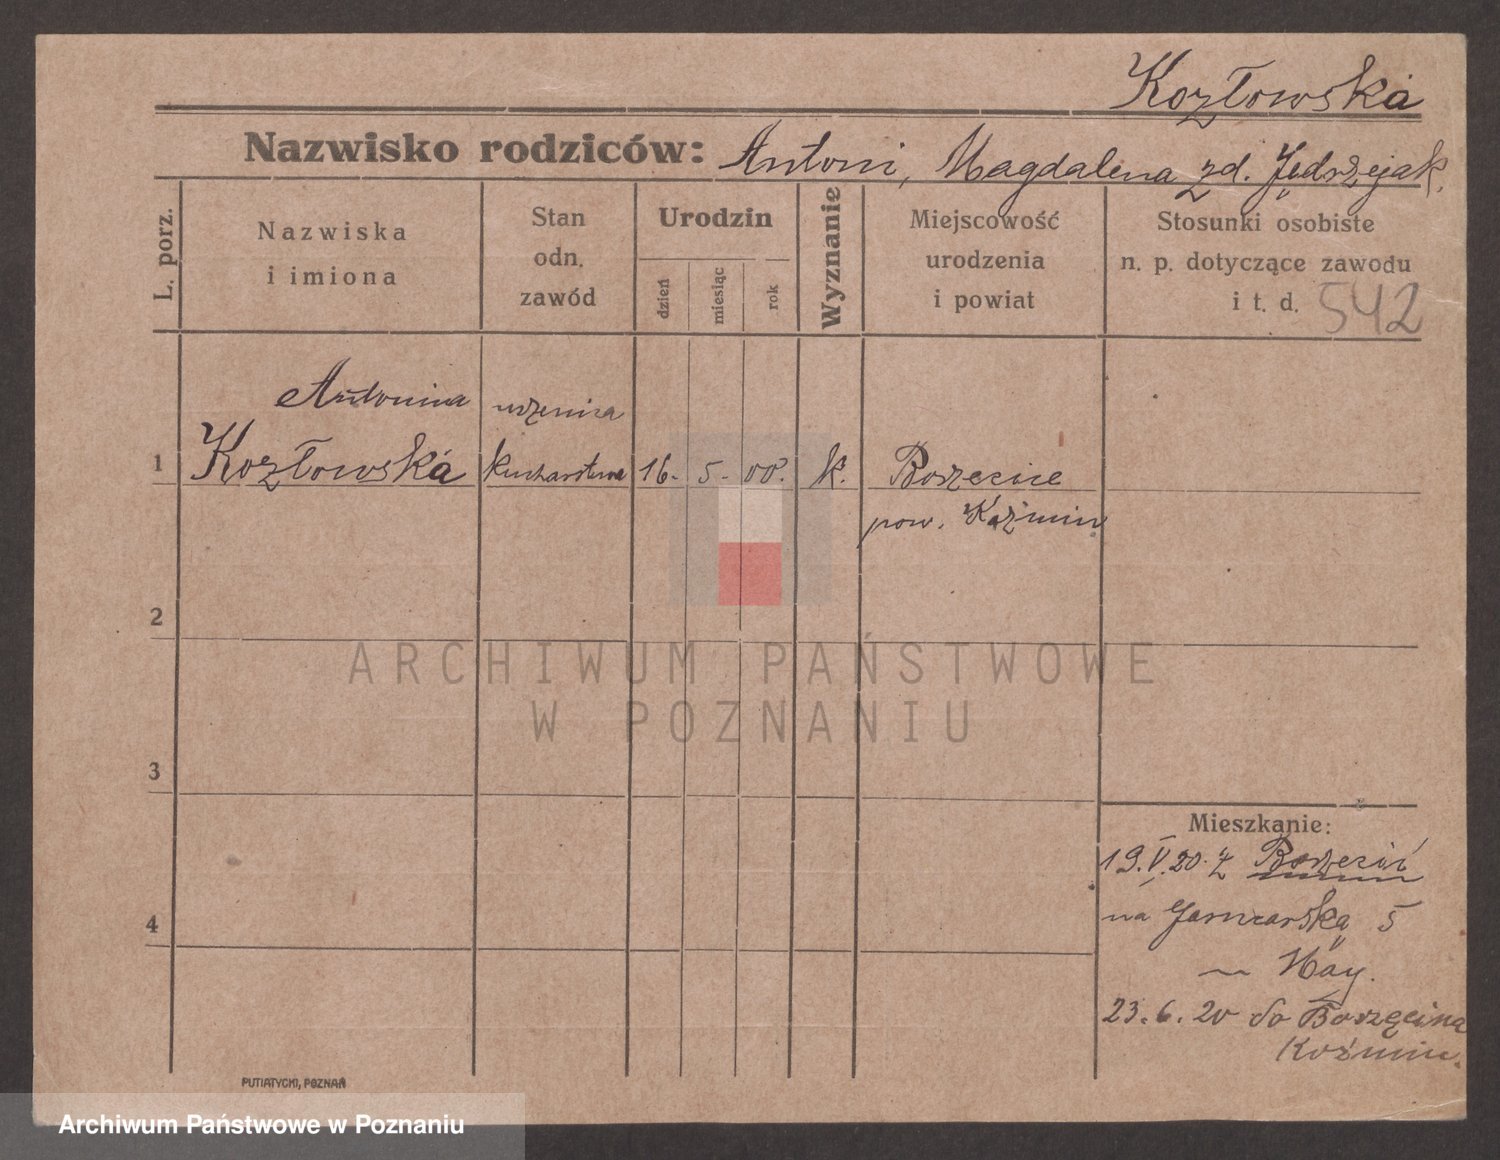 Kozłowska
Nazwisko rodziców: Antoni, Magdalena zd. Jędrzejak.
L. porz.
Nazwiska
i imiona
Stan
odn.
zawód
Urodzin
dzień
miesiąc
rok
Wyznanie
Miejscowość
urodzenia
i powiat
Stosunki osobiste
n. p. dotyczące zawodu
i t. d. 542
Antonina uczenica
1 Kozłowska kucharstwa 16. 5. 00. k. Borzecice
pow. Koźmin
2
ARCHIWUM PAŃSTWOWE
W POZNANIU
3
Mieszkanie:
19.V.20. z Borzecic
na Garncarską 5
4
Hay.
23.6.20 do Borzęcina
Koźmin.
PUTIATYCKI, POZNAŃ
Archiwum Państwowe w Poznaniu